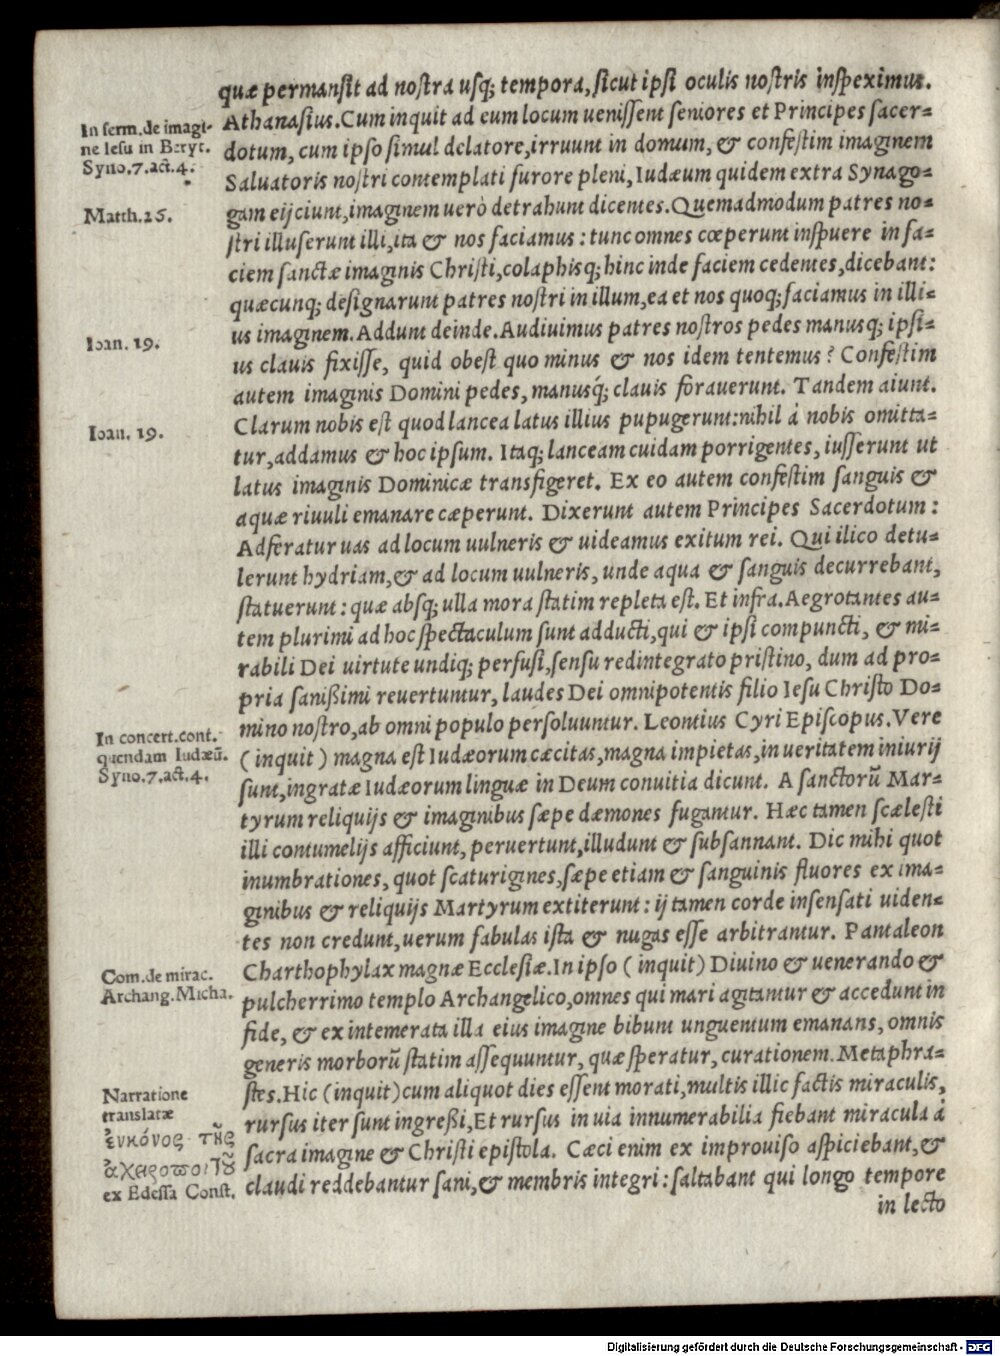 quæ permansit ad nostra usq; tempora, sicut ipsi oculis nostris inspeximus.
Athanasius. Cum inquit ad eum locum uenissent seniores et Principes sacer-
dotum, cum ipso simul delatore, irruunt in domum, & confestim imaginem
Saluatoris nostri contemplati furore pleni, Iudæum quidem extra Synago-
gam eijciunt, imaginem uerò detrahunt dicentes. Quemadmodum patres no-
stri illuserunt illi, ita & nos faciamus: tunc omnes cœperunt inspuere in fa-
ciem sanctæ imaginis Christi, colaphisq; hinc inde faciem cedentes, dicebant:
quæcunq; designarunt patres nostri in illum, ea et nos quoq; faciamus in illi-
us imaginem. Addunt deinde. Audiuimus patres nostros pedes manusq; ipsi-
us clauis fixisse, quid obest quo minus & nos idem tentemus? Confestim
autem imaginis Domini pedes, manusq́; clauis forauerunt. Tandem aiunt.
Clarum nobis est quod lancea latus illius pupugerunt: nihil á nobis omitta-
tur, addamus & hoc ipsum. Itaq; lanceam cuidam porrigentes, iusserunt ut
latus imaginis Dominicæ transfigeret. Ex eo autem confestim sanguis &
aquæ riuuli emanare cæperunt. Dixerunt autem Principes Sacerdotum:
Adferatur uas ad locum uulneris & uideamus exitum rei. Qui ilico detu-
lerunt hydriam, & ad locum uulneris, unde aqua & sanguis decurrebant,
statuerunt: quæ absq; ulla mora statim repleta est. Et infra. Aegrotantes au-
tem plurimi ad hoc spectaculum sunt adducti, qui & ipsi compuncti, & mi-
rabili Dei uirtute undiq; perfusi, sensu redintegrato pristino, dum ad pro-
pria sanißimi reuertuntur, laudes Dei omnipotentis filio Iesu Christo Do-
mino nostro, ab omni populo persoluuntur. Leontius Cyri Episcopus. Vere
(inquit) magna est Iudæorum cæcitas, magna impietas, in ueritatem iniurij
sunt, ingratæ Iudæorum linguæ in Deum conuitia dicunt. A sanctorũ Mar-
tyrum reliquijs & imaginibus sæpe dæmones fugantur. Hæc tamen scælesti
illi contumelijs afficiunt, peruertunt, illudunt & subsannant. Dic mihi quot
inumbrationes, quot scaturigines, sæpe etiam & sanguinis fluores ex ima-
ginibus & reliquijs Martyrum extiterunt: ij tamen corde insensati uiden-
tes non credunt, uerum fabulas ista & nugas esse arbitrantur. Pantaleon
Charthophylax magnæ Ecclesiæ. In ipso (inquit) Diuino & uenerando &
pulcherrimo templo Archangelico, omnes qui mari agitantur & accedunt in
fide, & ex intemerata illa eius imagine bibunt unguentum emanans, omnis
generis morborũ statim assequuntur, quæ speratur, curationem. Metaphra-
stes. Hic (inquit) cum aliquot dies essent morati, multis illic factis miraculis,
rursus iter sunt ingreßi, Et rursus in uia innumerabilia fiebant miracula á
sacra imagine & Christi epistola. Cæci enim ex improuiso aspiciebant, &
claudi reddebantur sani, & membris integri: saltabant qui longo tempore
in lecto
In serm. de imagi-
ne Iesu in Beryt.
Syno. 7. act. 4.
Matth. 26.
Ioan. 19.
Ioan. 19.
In concert. cont.
quendam Iudæũ.
Syno. 7. act. 4.
Com. de mirac.
Archang. Micha.
Narratione
translatæ
ἐικόνος τῆς
ἀχειροποιήτου
ex Edessa Const.
Digitalisierung gefördert durch die Deutsche Forschungsgemeinschaft - DFG